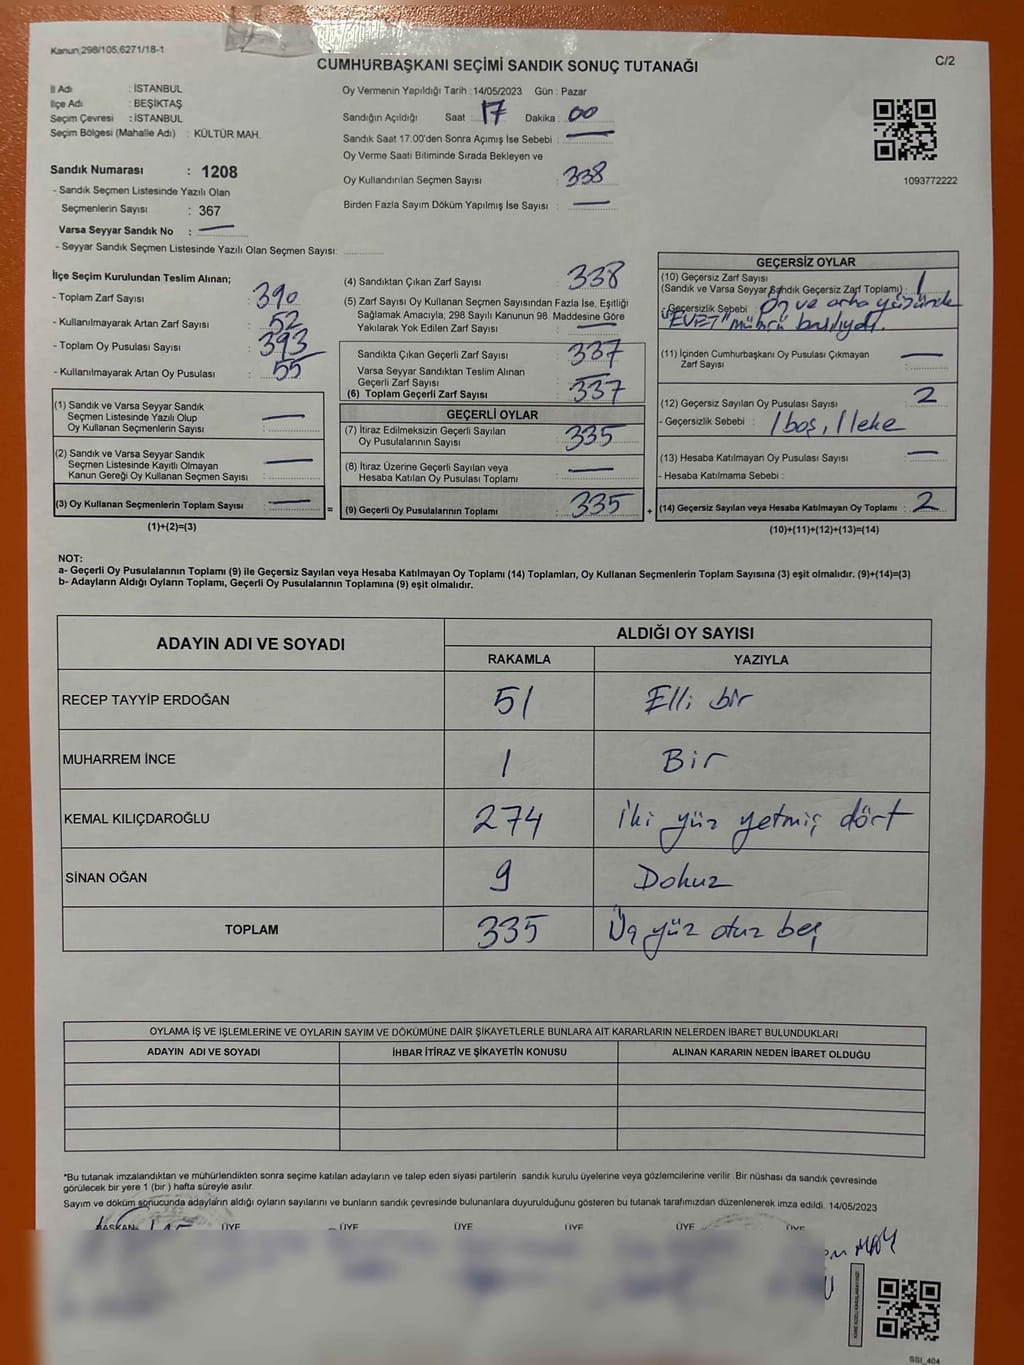 Kanun;298/105,6271/18-1
C/2
CUMHURBAŞKANI SEÇİMİ SANDIK SONUÇ TUTANAĞI
İl Adı : İSTANBUL
İlçe Adı : BEŞİKTAŞ
Seçim Çevresi : İSTANBUL
Seçim Bölgesi (Mahalle Adı) : KÜLTÜR MAH.
Oy Vermenin Yapıldığı Tarih : 14/05/2023 Gün : Pazar
Sandığın Açıldığı Saat : 17 Dakika : 00
Sandık Saat 17.00'den Sonra Açımış İse Sebebi : —
Oy Verme Saati Bitiminde Sırada Bekleyen ve
Oy Kullandırılan Seçmen Sayısı : 338
Birden Fazla Sayım Döküm Yapılmış İse Sayısı : —
1093772222
Sandık Numarası : 1208
- Sandık Seçmen Listesinde Yazılı Olan
Seçmenlerin Sayısı : 367
Varsa Seyyar Sandık No : —
- Seyyar Sandık Seçmen Listesinde Yazılı Olan Seçmen Sayısı:
İlçe Seçim Kurulundan Teslim Alınan;
- Toplam Zarf Sayısı : 390
- Kullanılmayarak Artan Zarf Sayısı : 52
- Toplam Oy Pusulası Sayısı : 393
- Kullanılmayarak Artan Oy Pusulası : 55
(1) Sandık ve Varsa Seyyar Sandık
Seçmen Listesinde Yazılı Olup
Oy Kullanan Seçmenlerin Sayısı : —
(2) Sandık ve Varsa Seyyar Sandık
Seçmen Listesinde Kayıtlı Olmayan
Kanun Gereği Oy Kullanan Seçmen Sayısı : —
(3) Oy Kullanan Seçmenlerin Toplam Sayısı : —
(1)+(2)=(3)
=
(4) Sandıktan Çıkan Zarf Sayısı : 338
(5) Zarf Sayısı Oy Kullanan Seçmen Sayısından Fazla İse, Eşitliği
Sağlamak Amacıyla, 298 Sayılı Kanunun 98. Maddesine Göre
Yakılarak Yok Edilen Zarf Sayısı : —
Sandıkta Çıkan Geçerli Zarf Sayısı : 337
Varsa Seyyar Sandıktan Teslim Alınan
Geçerli Zarf Sayısı : —
(6) Toplam Geçerli Zarf Sayısı : 337
GEÇERLİ OYLAR
(7) İtiraz Edilmeksizin Geçerli Sayılan
Oy Pusulalarının Sayısı : 335
(8) İtiraz Üzerine Geçerli Sayılan veya
Hesaba Katılan Oy Pusulası Toplamı : —
(9) Geçerli Oy Pusulalarının Toplamı : 335
+
GEÇERSİZ OYLAR
(10) Geçersiz Zarf Sayısı
(Sandık ve Varsa Seyyar Sandık Geçersiz Zarf Toplamı) : 1
- Geçersizlik Sebebi : Ön ve arka yüzünde
"EVET" mührü basılıydı.
(11) İçinden Cumhurbaşkanı Oy Pusulası Çıkmayan
Zarf Sayısı : —
(12) Geçersiz Sayılan Oy Pusulası Sayısı : 2
- Geçersizlik Sebebi : 1 boş, 1 leke
(13) Hesaba Katılmayan Oy Pusulası Sayısı : —
- Hesaba Katılmama Sebebi :
(14) Geçersiz Sayılan veya Hesaba Katılmayan Oy Toplamı : 2
(10)+(11)+(12)+(13)=(14)
NOT:
a- Geçerli Oy Pusulalarının Toplamı (9) ile Geçersiz Sayılan veya Hesaba Katılmayan Oy Toplamı (14) Toplamları, Oy Kullanan Seçmenlerin Toplam Sayısına (3) eşit olmalıdır. (9)+(14)=(3)
b- Adayların Aldığı Oyların Toplamı, Geçerli Oy Pusulalarının Toplamına (9) eşit olmalıdır.
ADAYIN ADI VE SOYADI
ALDIĞI OY SAYISI
RAKAMLA YAZIYLA
RECEP TAYYİP ERDOĞAN 51 Elli bir
MUHARREM İNCE 1 Bir
KEMAL KILIÇDAROĞLU 274 İki yüz yetmiş dört
SİNAN OĞAN 9 Dokuz
TOPLAM 335 Üç yüz otuz beş
OYLAMA İŞ VE İŞLEMLERİNE VE OYLARIN SAYIM VE DÖKÜMÜNE DAİR ŞİKAYETLERLE BUNLARA AİT KARARLARIN NELERDEN İBARET BULUNDUKLARI
ADAYIN ADI VE SOYADI İHBAR İTİRAZ VE ŞİKAYETİN KONUSU ALINAN KARARIN NEDEN İBARET OLDUĞU
*Bu tutanak imzalandıktan ve mühürlendikten sonra seçime katılan adayların ve talep eden siyasi partilerin sandık kurulu üyelerine veya gözlemcilerine verilir. Bir nüshası da sandık çevresinde
görülecek bir yere 1 (bir) hafta süreyle asılır.
Sayım ve döküm sonucunda adayların aldığı oyların sayılarını ve bunların sandık çevresinde bulunanlara duyurulduğunu gösteren bu tutanak tarafımızdan düzenlenerek imza edildi. 14/05/2023
BAŞKAN ÜYE ÜYE ÜYE ÜYE ÜYE
SSI_404